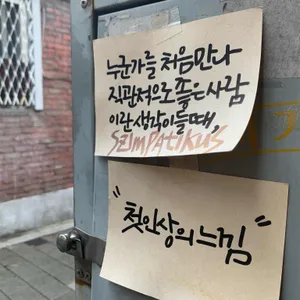 누군가를 처음만나
직관적으로 좋은사람
이란 생각이들때,
SZIMPATIKUS
"첫인상의 느낌"